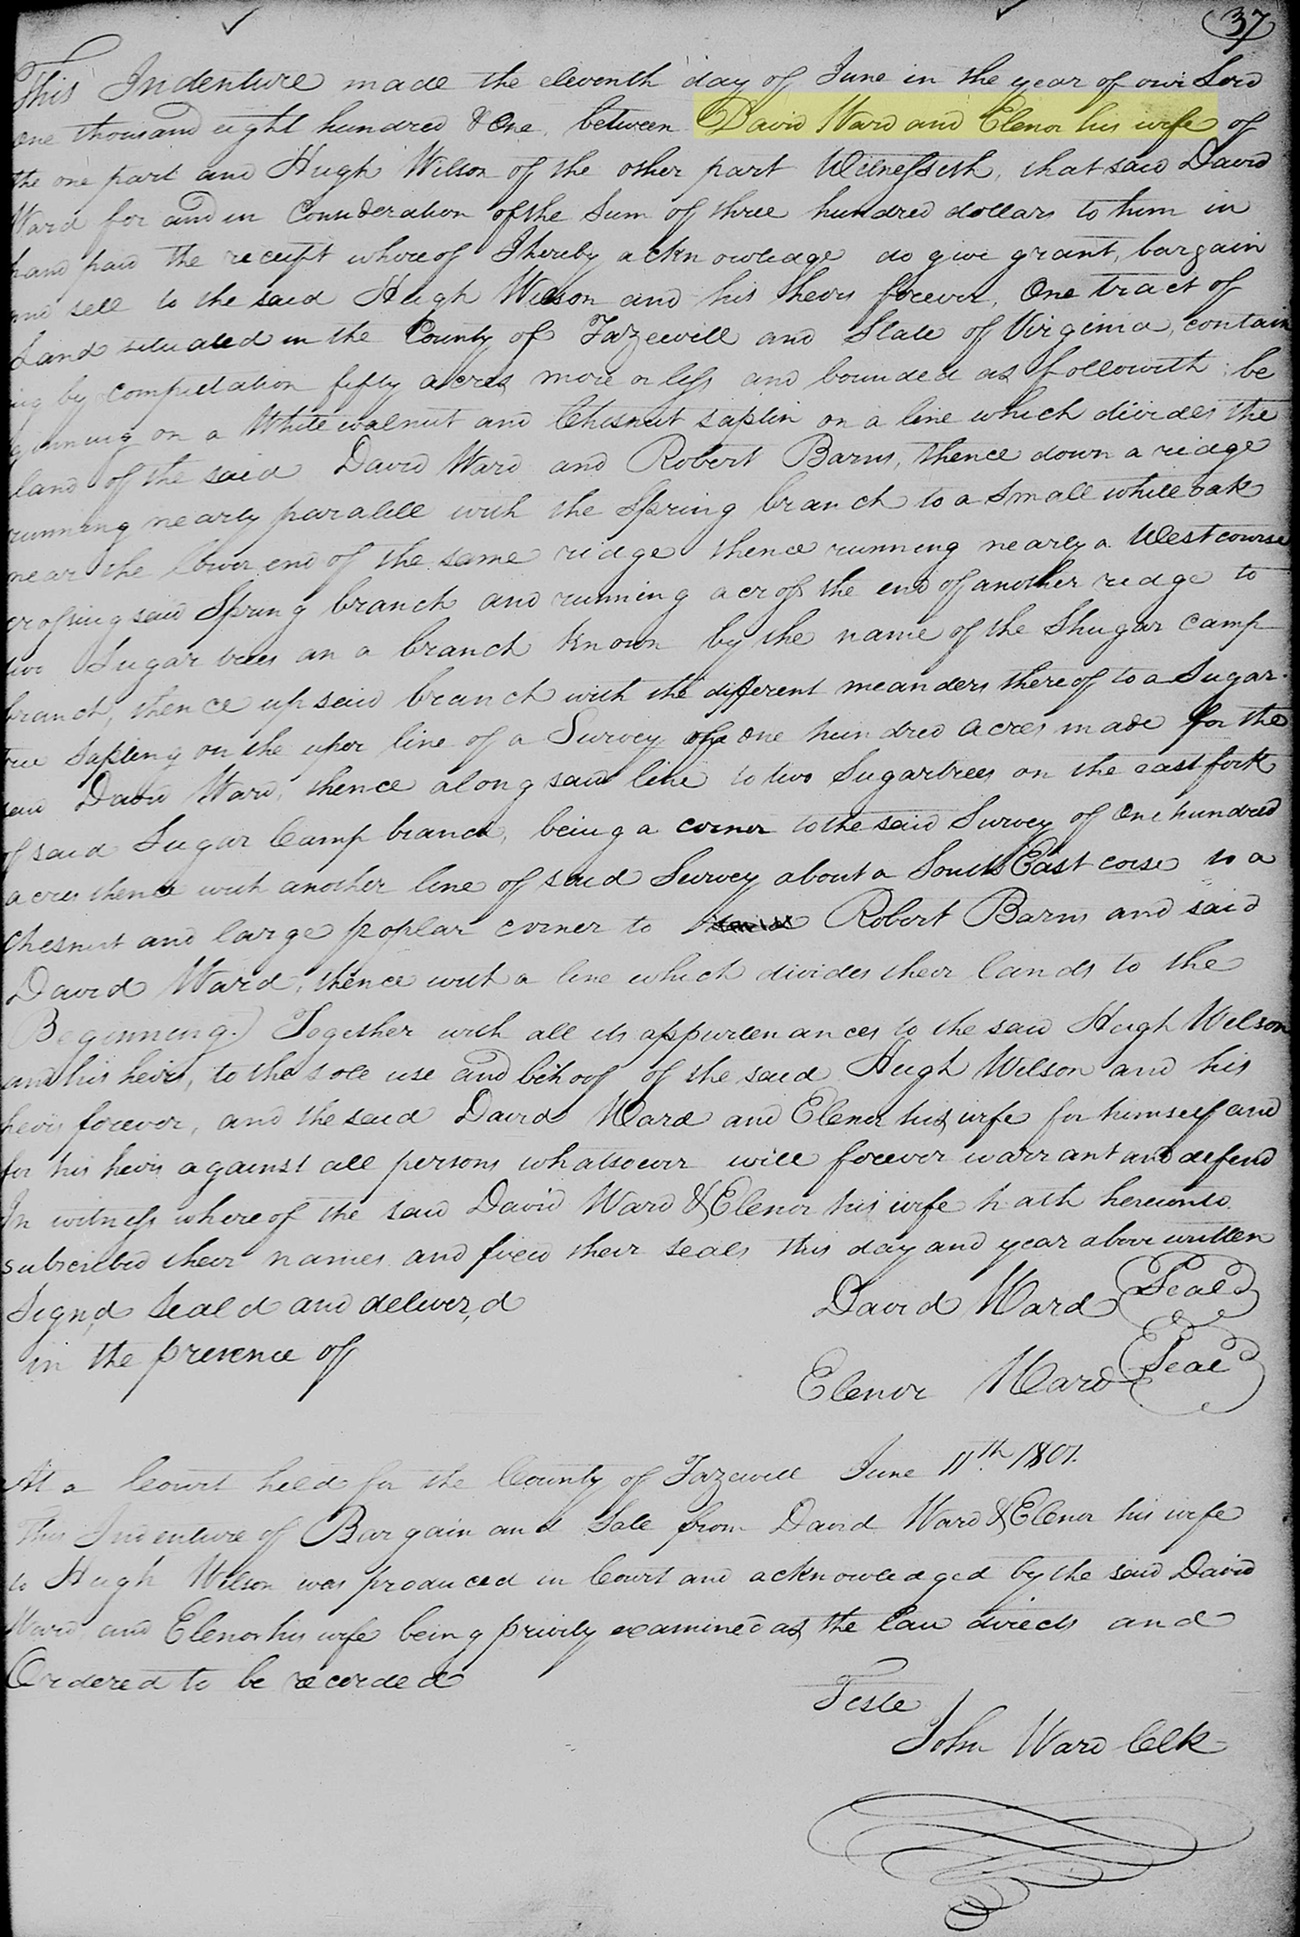 37
This Indenture made the eleventh day of June in the year of our Lord
one thousand eight hundred & One, between David Ward and Elenor his wife of
the one part and Hugh Wilson of the other part Witnesseth, that said David
Ward for and in Consideration of the Sum of three hundred dollars to him in
hand paid the receipt whereof I hereby acknowledge do give grant, bargain
and sell to the said Hugh Wilson and his heirs forever, One tract of
Land situated in the County of Tazewell and State of Virginia, contain
ing by computation fifty acres more or less and bounded as followith be
ginning on a White walnut and Chesnut saplin on a line which divides the
land of the said David Ward and Robert Barns, thence down a ridge
running nearly paralell with the Spring branch to a small white oak
near the lower end of the same ridge thence running nearly a West course
crossing said Spring branch and running across the end of another ridge to
two Sugar trees on a branch known by the name of the Shugar Camp
branch, thence up said branch with the different meanders thereof to a Sugar
tree sapling on the uper line of a Survey of one hundred acres made for the
said David Ward, thence along said line to two Sugartrees on the east fork
of said Sugar Camp branch, being a corner to the said Survey of One hundred
acres thence with another line of said Survey about a South East corse to a
chesnut and large poplar corner to Robert Barns and said
David Ward, thence with a line which divides their lands to the
Beginning.) Together with all its appurtenances to the said Hugh Wilson
and his heirs, to the sole use and behoof of the said Hugh Wilson and his
heirs forever, and the said David Ward and Elenor his wife for himself and
for his heirs against all persons whatsoever will forever warrant and defend
In witness whereof the said David Ward & Elenor his wife hath hereunto
subscribed their names and fixed their seals this day and year above written
Sign,d Seald and deliver,d
in the presence of
David Ward Seal
Elenor Ward Seal
At a Court held for the County of Tazewell June 11th 1801.
This Indenture of Bargain and Sale from David Ward & Elenor his wife
to Hugh Wilson was produced in Court and acknowledged by the said David
Ward and Elenor his wife being privily examined as the law directs and
Ordered to be recorded
Teste
John Ward Clk